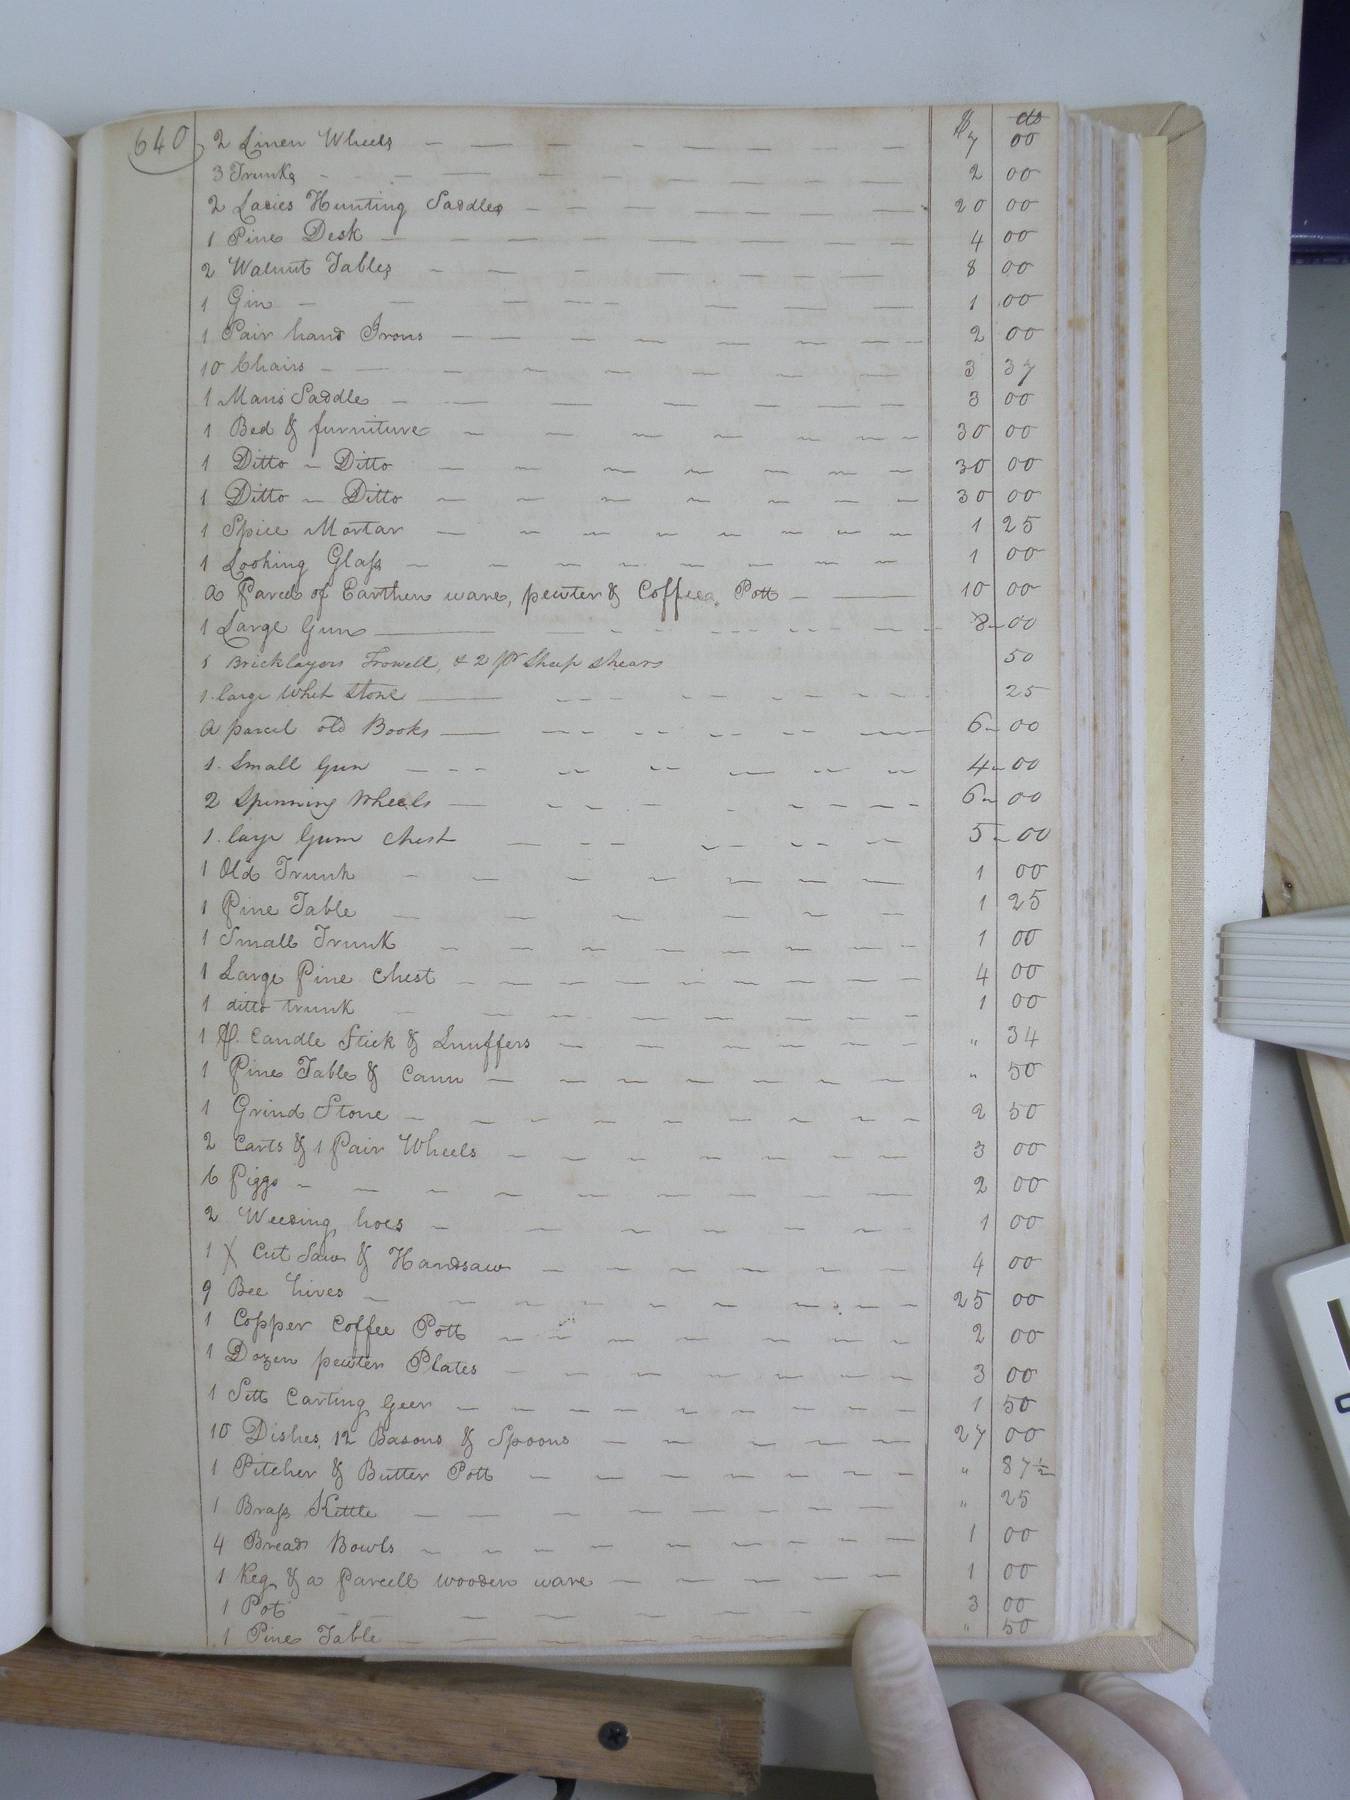 640
$ cts
2 Linen Wheels 7 00
3 Trunks 2 00
2 Ladies Hunting Saddles 20 00
1 Pine Desk 4 00
2 Walnut Tables 8 00
1 Gin 1 00
1 Pair hand Irons 2 00
10 Chairs 3 37
1 Mans Saddle 3 00
1 Bed & furniture 30 00
1 Ditto ~ Ditto 30 00
1 Ditto ~ Ditto 30 00
1 Spice Mortar 1 25
1 Looking Glass 1 00
a Parcel of Earthen ware, pewter & Coffee Pott 10 00
1 Large Gun 8 00
1 Bricklayors Trowell, & 2 pr Sheep Shears 50
1 large Whet Stone 25
a parcel old Books 6 00
1 Small Gun 4 00
2 Spinning Wheels 6 00
1 large Gum Chest 5 00
1 Old Trunk 1 00
1 Pine Table 1 25
1 Small Trunk 1 00
1 Large Pine Chest 4 00
1 ditto trunk 1 00
1 p. Candle Stick & Snuffers " 34
1 Pine Table & Cann " 50
1 Grind Stone 2 50
2 Carts & 1 Pair Wheels 3 00
6 Piggs 2 00
2 Weeding hoes 1 00
1 X Cut Saw & Handsaw 4 00
9 Bee hives 25 00
1 Copper Coffee Pott 2 00
1 Dozen pewter Plates 3 00
1 Sett Carting Geer 1 50
10 Dishes, 12 Basons & Spoons 27 00
1 Pitcher & Butter Pott " 87½
1 Brass Kettle " 25
4 Bread Bowls 1 00
1 Keg & a Parcell wooden ware 1 00
1 Pot 3 00
1 Pine Table " 50